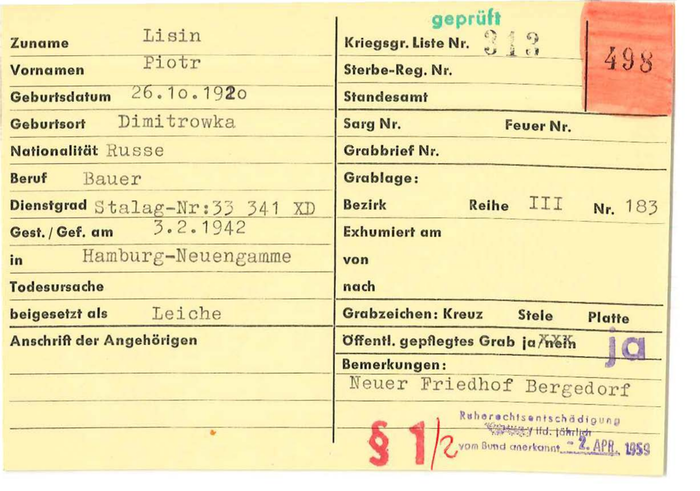 geprüft
Zuname Lisin
Vornamen Piotr
Geburtsdatum 26.10.1920
Geburtsort Dimitrowka
Nationalität Russe
Beruf Bauer
Dienstgrad Stalag-Nr:33 341 XD
Gest./Gef. am 3.2.1942
in Hamburg-Neuengamme
Todesursache
beigesetzt als Leiche
Anschrift der Angehörigen
Kriegsgr. Liste Nr. 313
498
Sterbe-Reg. Nr.
Standesamt
Sarg Nr. Feuer Nr.
Grabbrief Nr.
Grablage:
Bezirk Reihe III Nr. 183
Exhumiert am
von
nach
Grabzeichen: Kreuz Stele Platte
Öffentl. gepflegtes Grab ja/nein ja
Bemerkungen:
Neuer Friedhof Bergedorf
Ruherechtsentschädigung
/ lfd. jährlich
vom Bund anerkannt - 2. APR. 1959
§ 1/2